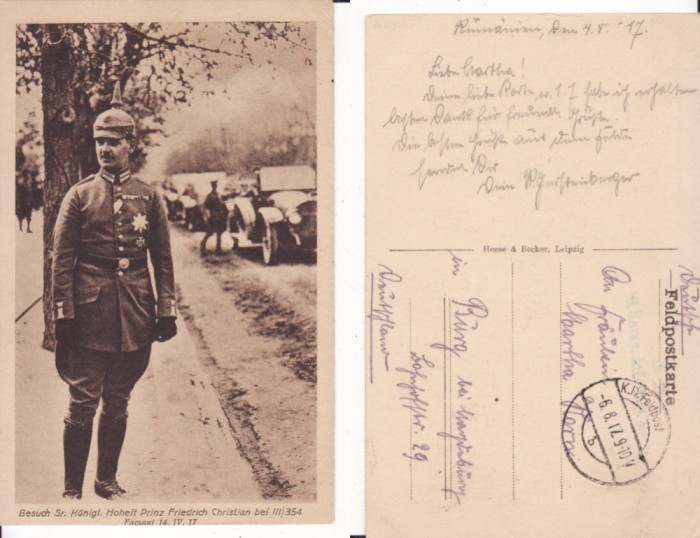 Besuch Sr. Königl. Hoheit Prinz Friedrich Christian bei III/354
Focsani 14. IV. 17
Rumänien, den 4.8.17.
Liebe Martha!
Deine liebe Karte v. 1.7. habe ich erhalten
besten Dank für freundl. Grüße.
Die besten Grüße aus dem Felde
sendet Dir
Dein
Hesse & Becker, Leipzig
Feldpostkarte
An Fräulein
Martha
in Burg bei Magdeburg
29
Deutschland
K.D. Feldpost
-6.8.17. 9-10V
b